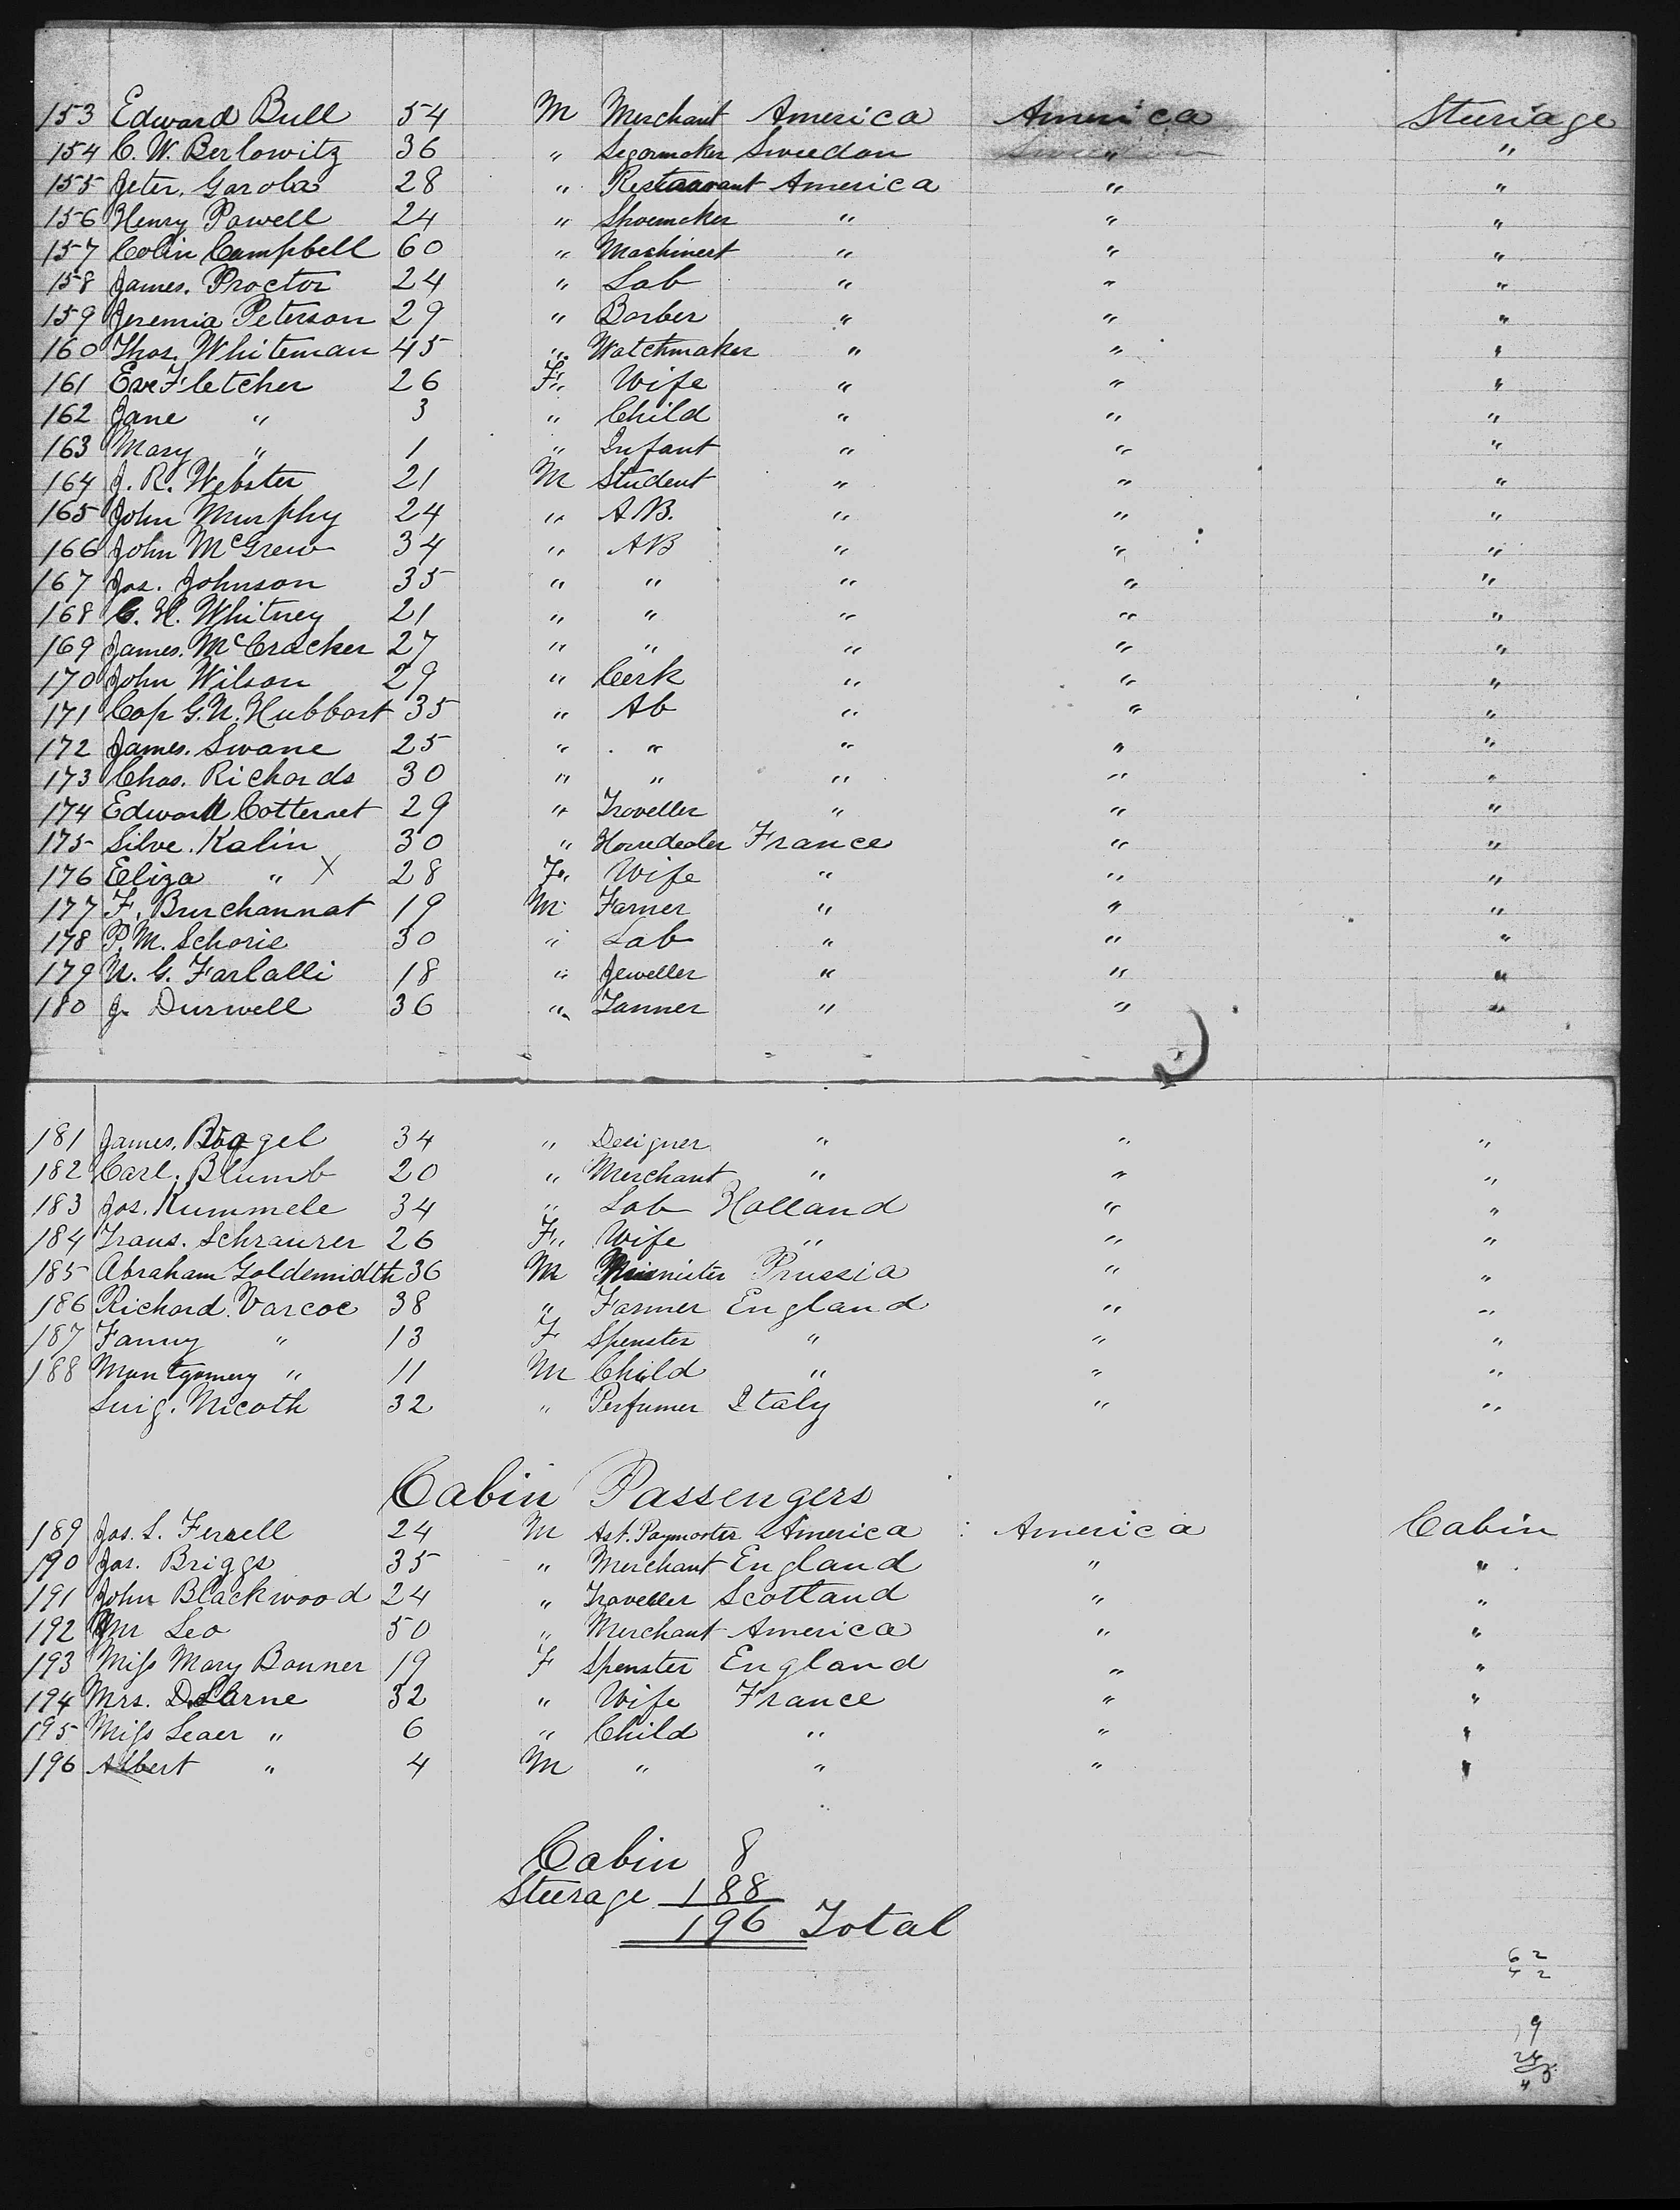 153 Edward Bull 54 M Merchant America America Steriage
154 C. W. Berlowitz 36 " Segormaker Sweedon " "
155 Jeter. Garola 28 " Restaurant America " "
156 Henry Powell 24 " Shoemaker " " "
157 Colin Campbell 60 " Mashinest " " "
158 James. Proctor 24 " Lab " " "
159 Jeremia Peterson 29 " Barber " " "
160 Thos. Whiteman 45 " Watchmaker " " "
161 Eve Fletcher 26 F " Wife " " "
162 Jane " 3 " Child " " "
163 Mary " 1 " Infant " " "
164 J. R. Webster 21 M Student " " "
165 John Murphy 24 " A B. " " "
166 John McGrew 34 " AB " " "
167 Jos. Johnson 35 " " " " "
168 C. H. Whitney 21 " " " " "
169 James. McCracker 27 " " " " "
170 John Wilson 29 " Cerk " " "
171 Cap G. N. Hubbart 35 " Ab " " "
172 James. Swane 25 " " " " "
173 Chas. Richards 30 " " " " "
174 Edward Cotternet 29 " Traveller " " "
175 Silve. Kalin 30 " Horsedealer France " "
176 Eliza " X 28 F " Wife " " "
177 F. Burchannat 19 M Farner " " "
178 P. M. Schorie 30 " Lab " " "
179 N. G. Farlalli 18 " Jeweller " " "
180 J. Durwell 36 " Tanner " " "
181 James. 34 " Designer " " "
182 Carl. Blumb 20 " Merchant " " "
183 Jos. Kummele 34 " Lab Holland " "
184 Frans. Schraurer 26 F " Wife " " "
185 Abraham Goldsmidth 36 M Minister Prussia " "
186 Richard. Varcoe 38 " Farmer England " "
187 Fanny " 13 F Spenster " " "
188 Muntgomery " 11 M Child " " "
Luig. Nicoth 32 " Perfumer Italy " "
Cabin Passengers
189 Jos. S. Ferrell 24 M Ast. Paymaster America America Cabin
190 Jos. Briggs 35 " Merchant England " "
191 John Blackwood 24 " Traveller Scotland " "
192 Mr Leo 50 " Merchant America " "
193 Miss Mary Bonner 19 F Spenster England " "
194 Mrs. 32 " Wife France " "
195 Miss Leaer " 6 " Child " " "
196 Albert " 4 M " " " "
Cabin 8
Steerage 188
196 Total
62
42
19
24
4